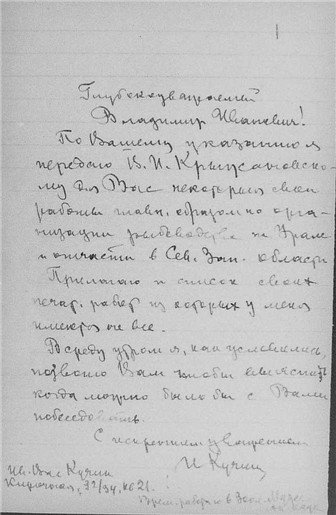 1
Глубокоуважаемый
Владимир Иванович!
По Вашему указанию я
передаю В.И. Крыжановско-
му для Вас некоторые свои
работы главн. образом по орга-
низации рыбоводства на Урале
и отчасти в Сев. Зап. области
Прилагаю и список своих
печат. работ из которых у меня
имеются не все.
В среду утром я, как условились,
позвоню Вам чтобы выяснить
когда можно было бы с Вами
побеседовать.
С искренним уважением
И Кучин
Ив. Вас Кучин
Кирочная, 32/34, кв 21.
Врем. работ в Зоол. Музее